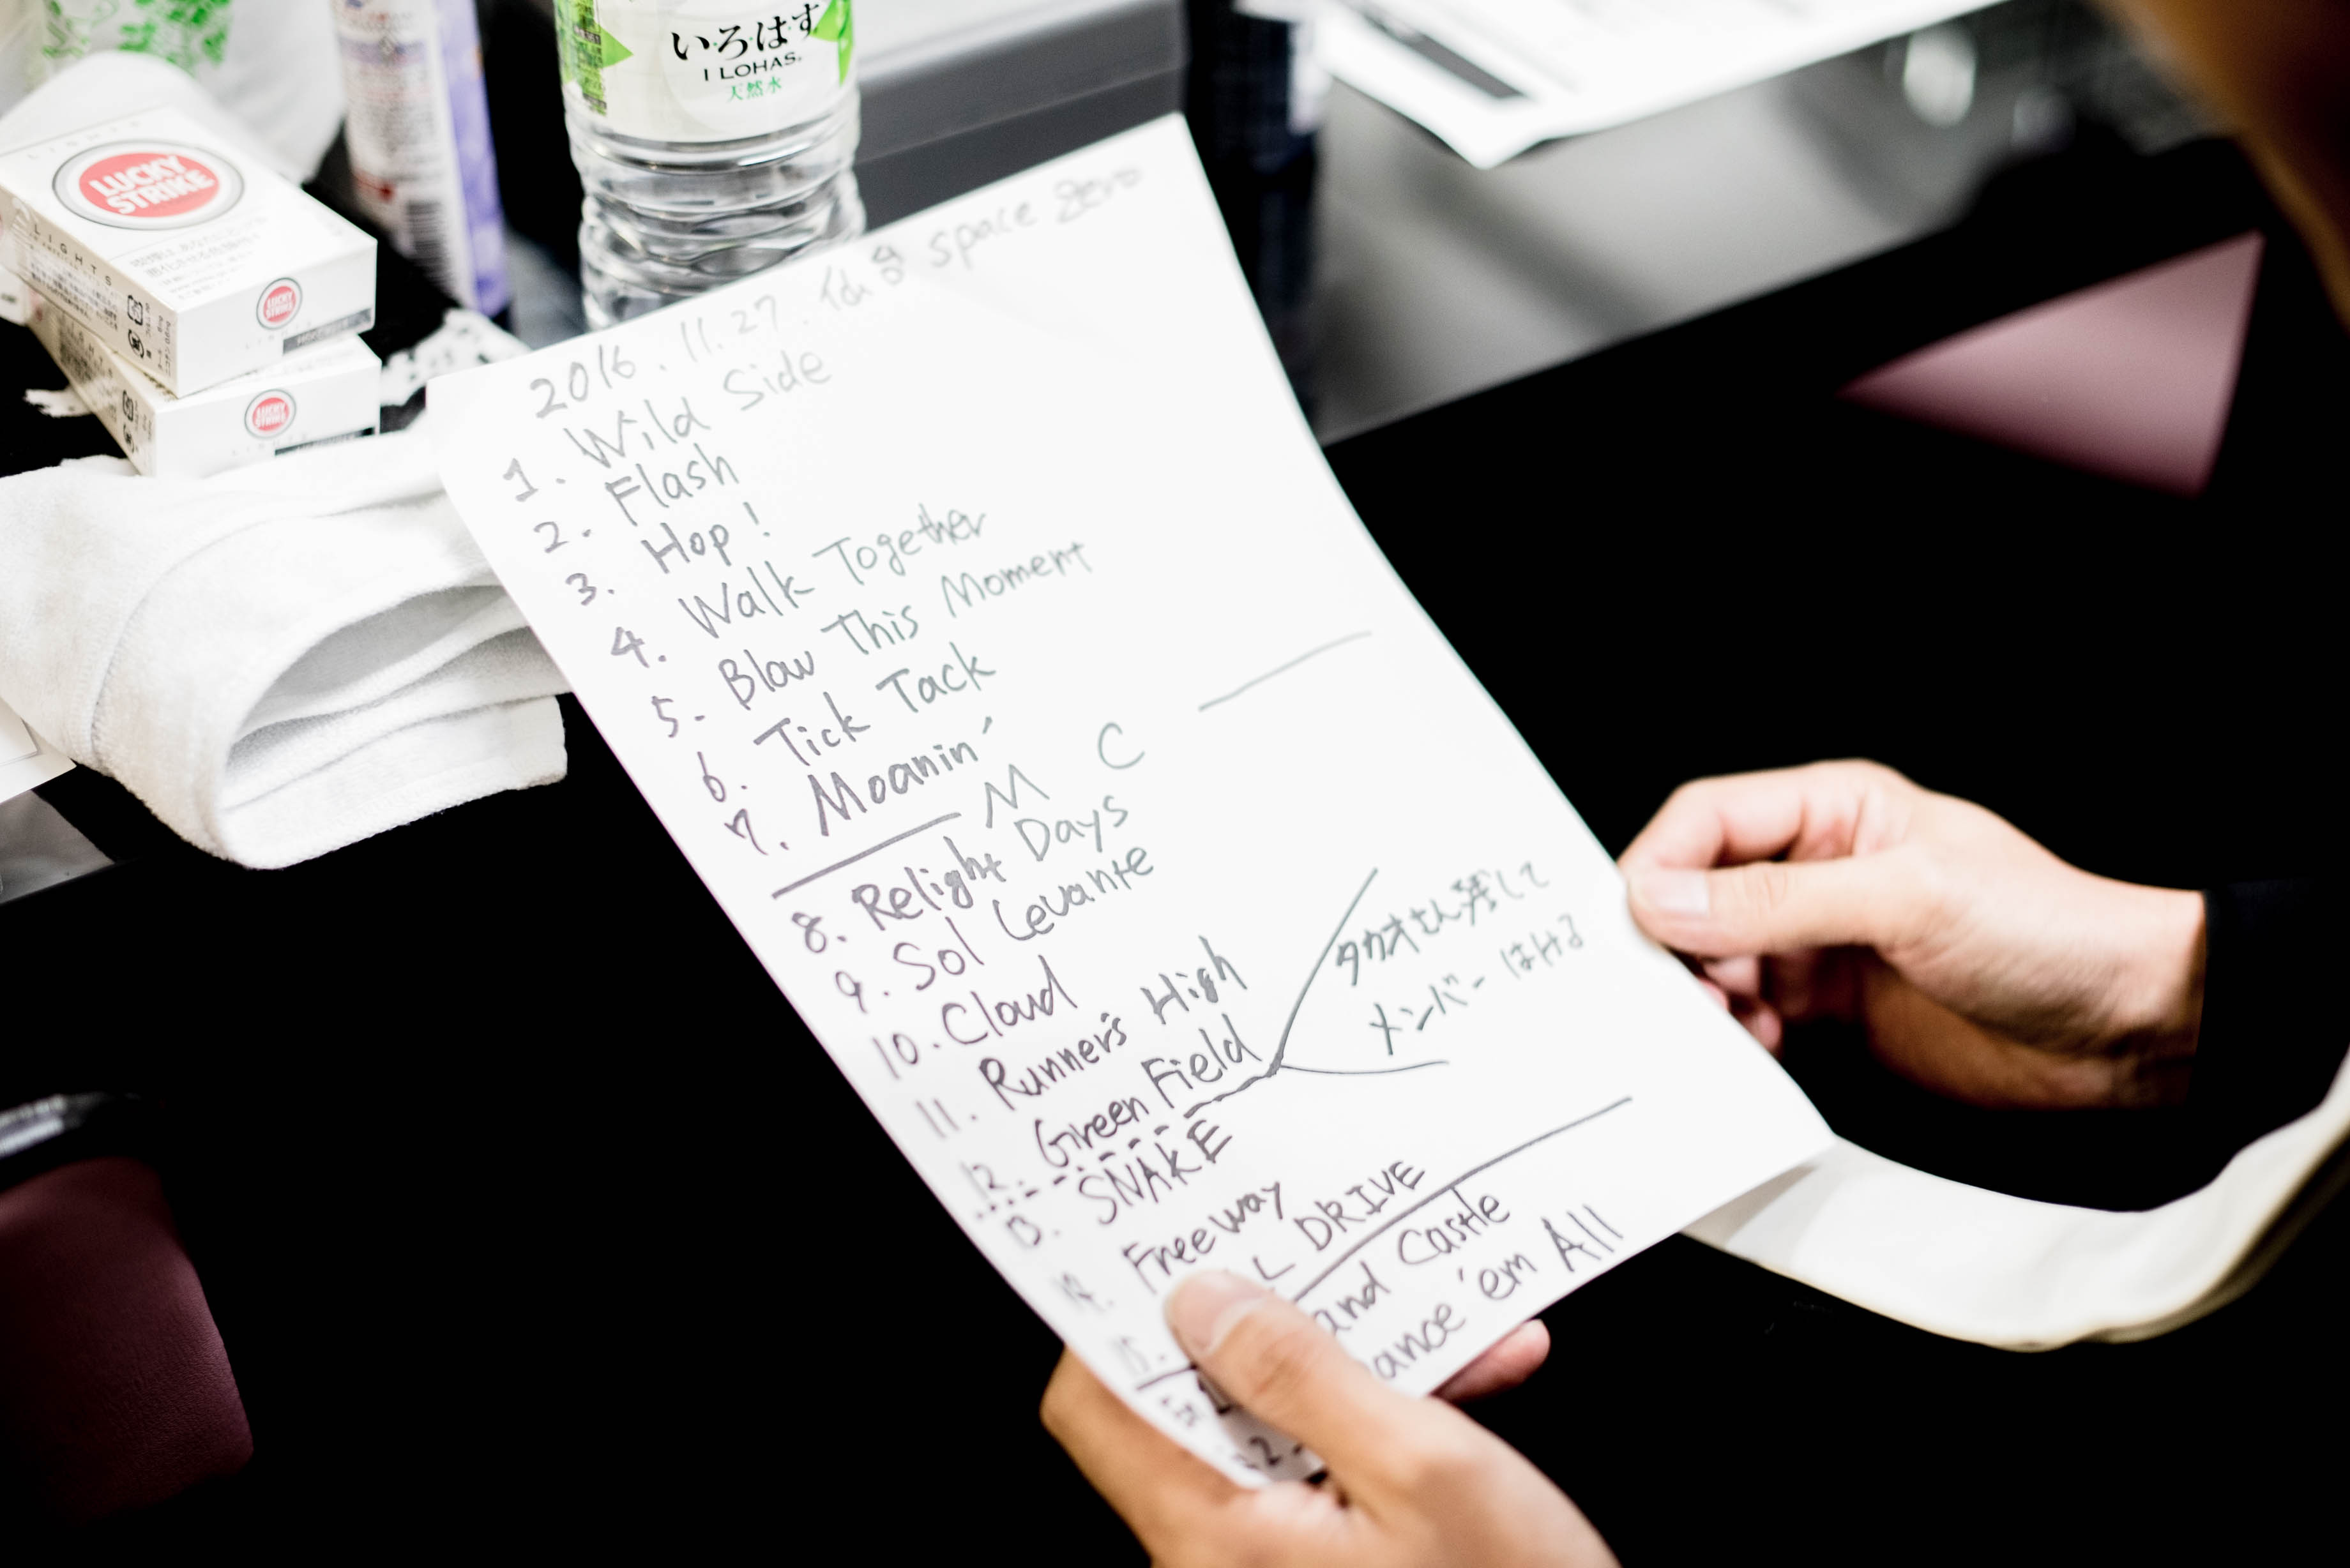 いろはす
I LOHAS.
天然水
LUCKY
STRIKE
LIGHTS
LUCKY
STRIKE
LUCKY
STRIKE
2016.11.27. space zero
1. Wild Side
2. Flash
3. Hop!
4. Walk Together
5. Blow This Moment
6. Tick Tack
7. Moanin'
M C
8. Relight Days
9. Sol Levante
10. Cloud
11. Runner's High
12. Green Field
タカオさん残して
メンバーはける
13. SNAKE
14. Freeway
15. L DRIVE
and Castle
ance 'em All